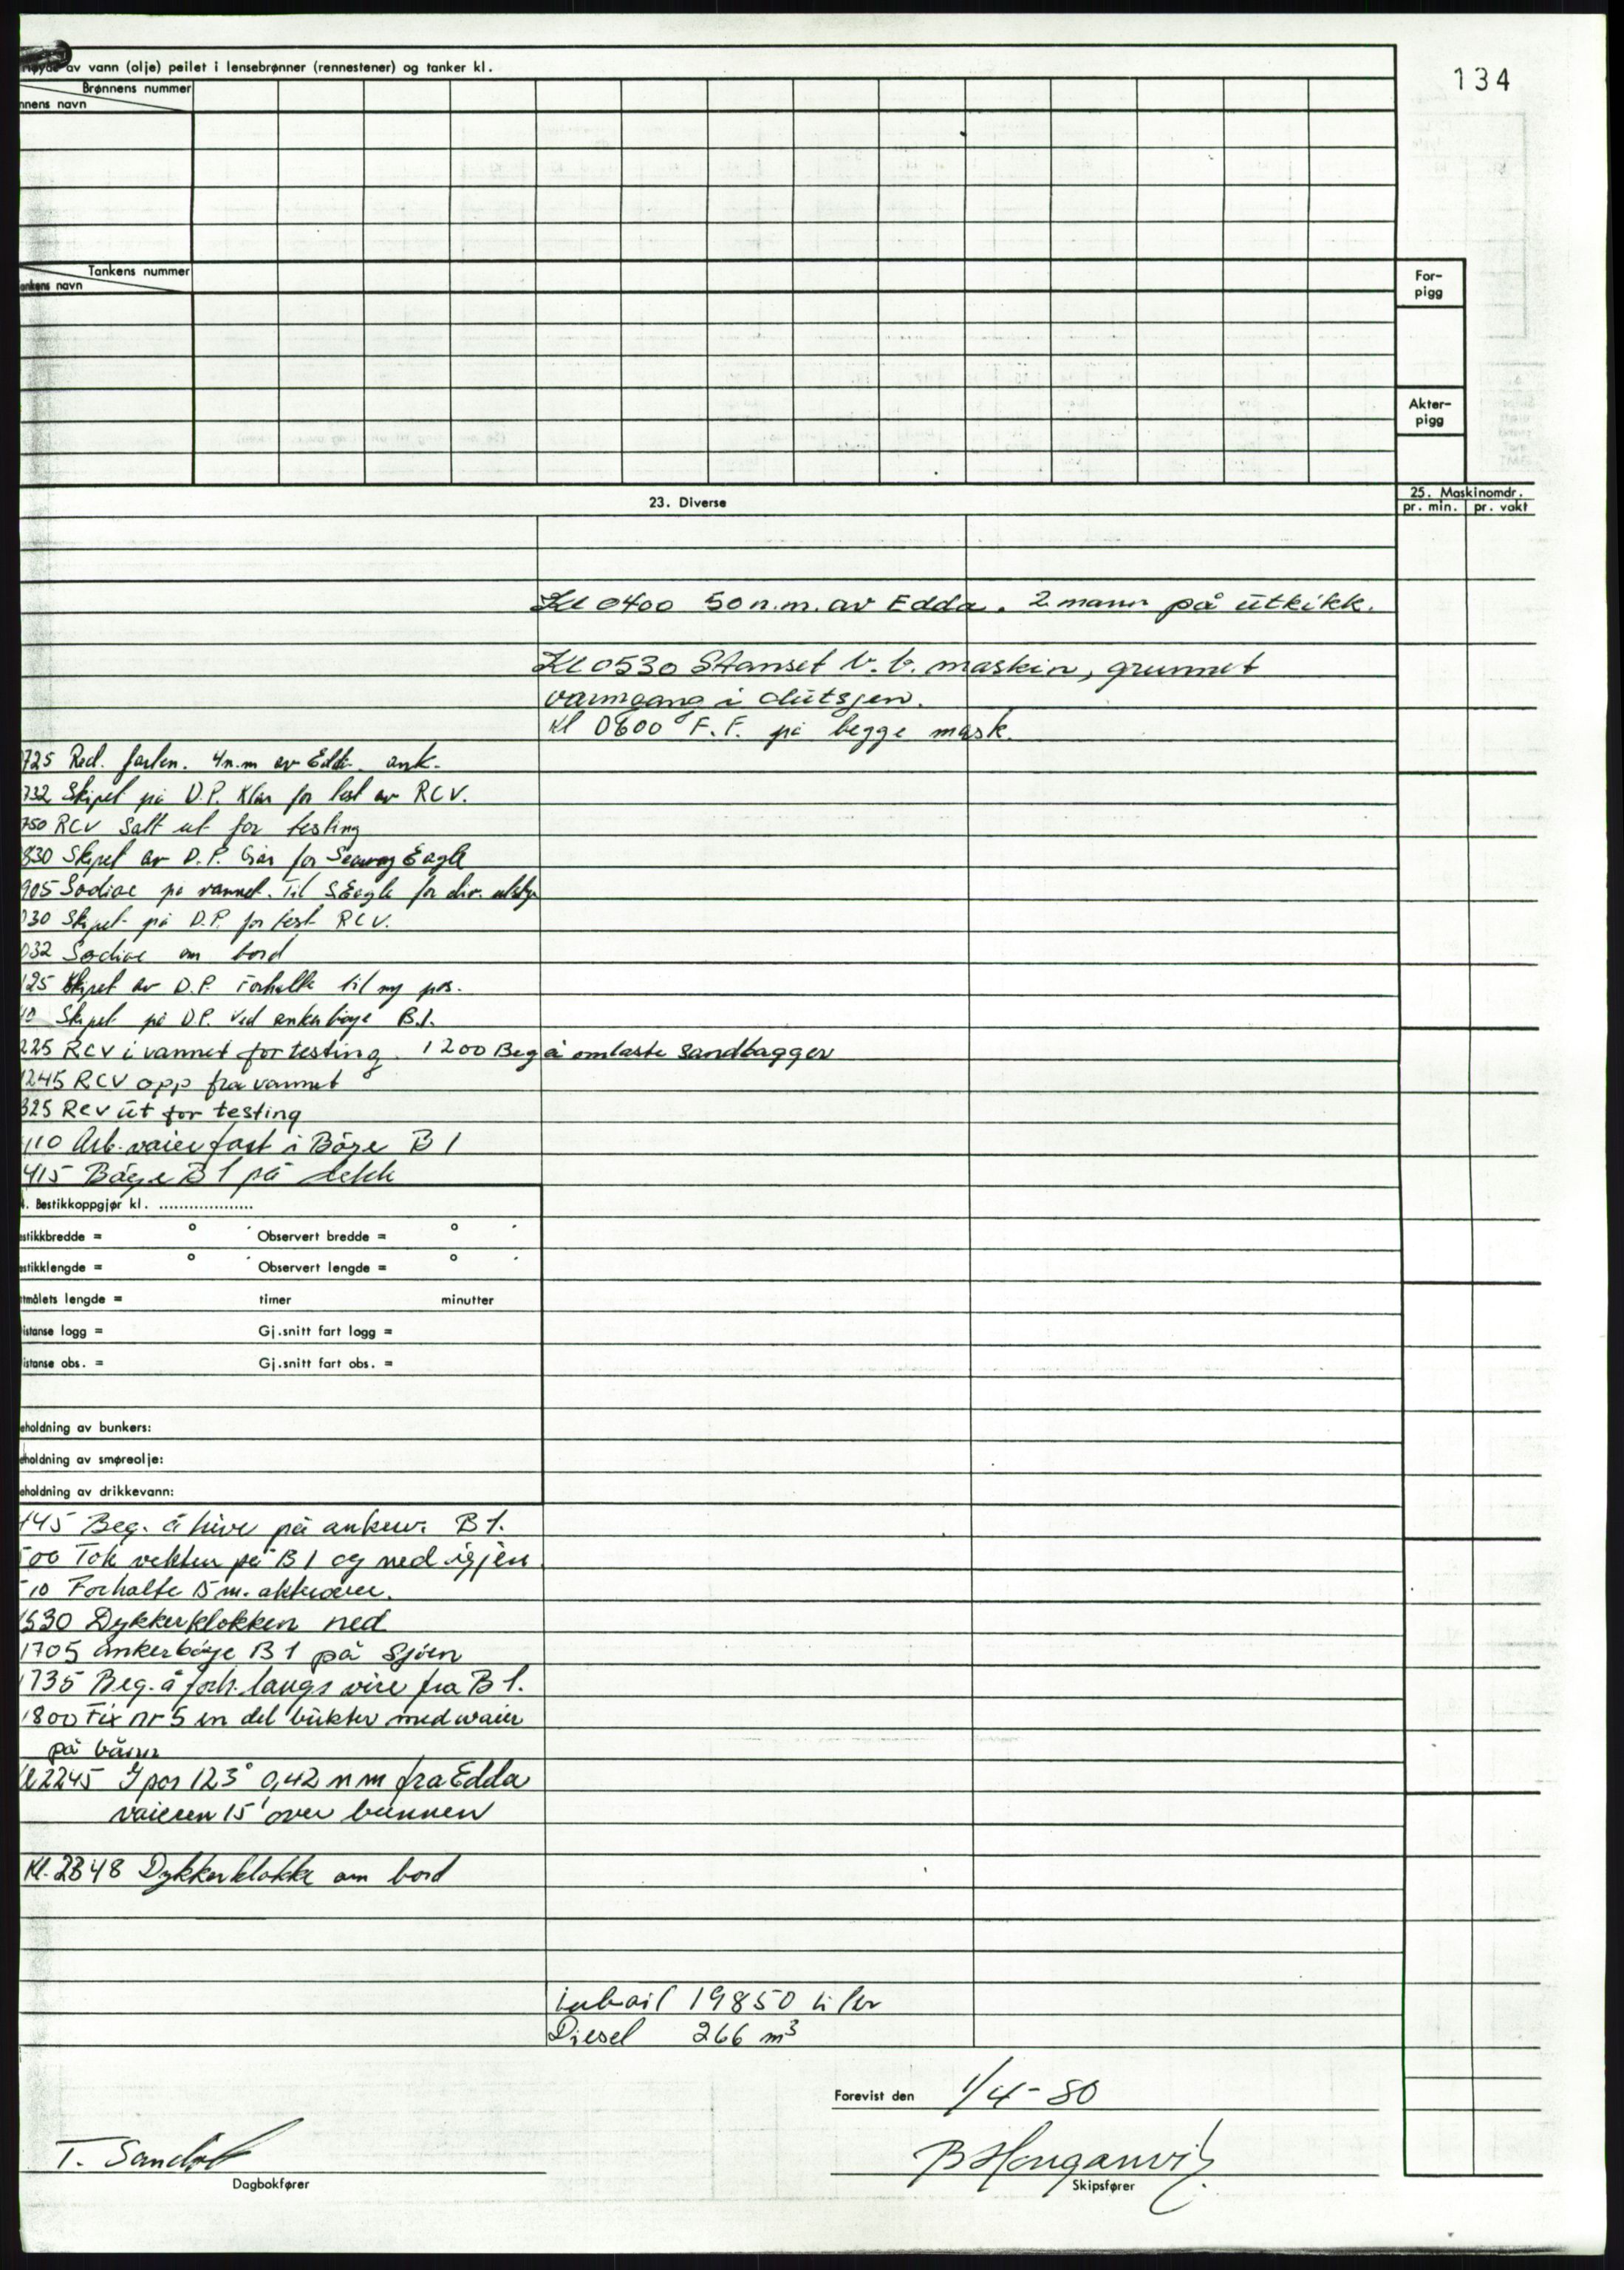 134
av vann (olje) peilet i lensebrønner (rennestener) og tanker kl.
Brønnens nummer
nnens navn
Tankens nummer
ankens navn
For-
pigg
Akter-
pigg
23. Diverse
25. Maskinomdr.
pr. min. pr. vakt
Kl 0400 50 n.m. av Edda. 2 mann på utkikk.
Kl 0530 Stanset b.b. maskin, grunnet
varmgang i clutsjen.
Kl 0600 F.F. på begge mask.
725 Red. farten. 4 n.m av Edda ank.
732 Skipet på D.P. Klar for test av RCV.
750 RCV Satt ut for testing
830 Skipet av D.P. Går for Seaway Eagle
905 Sodiac på vannet. Til S Eagle for div. utstyr
030 Skipet på D.P. for test RCV.
032 Sodiac om bord
125 Skipet av D.P. Forhalte til ny pos.
40 Skipet på DP. ved anker bøye B.1.
225 RCV i vannet for testing. 1200 Beg å omlaste Sandbagger
1245 RCV opp fra vannet
325 RCV ut for testing
410 Arb. vaier fast i Bøye B 1
415 Bøye B 1 på dekk
4. Bestikkoppgjør kl. ...................
estikkbredde = o ´ Observert bredde = o ´
estikklengde = o ´ Observert lengde = o ´
tmålets lengde = timer minutter
istanse logg = Gj.snitt fart logg =
istanse obs. = Gj.snitt fart obs. =
eholdning av bunkers:
eholdning av smøreolje:
eholdning av drikkevann:
145 Beg. å hive på ankerv. B 1.
500 Tok vekten på B 1 og ned igjen.
510 Forhalte 15 m. akterover.
1530 Dykkerklokken ned
1705 ankerbøye B 1 på Sjøen
1735 Beg. å forh. langs vire fra B 1.
1800 Fix nr 5 en del bukter med vaier
på bånn
Kl 2245 I pos 123° 0,42 n m fra Edda
vaieren 15' over bunnen
Kl. 2348 Dykkerklokke om bord
Luboil 19850 liter
Diesel 266 m3
Forevist den 1/4-80
T. Sandvik
Dagbokfører
Skipsfører